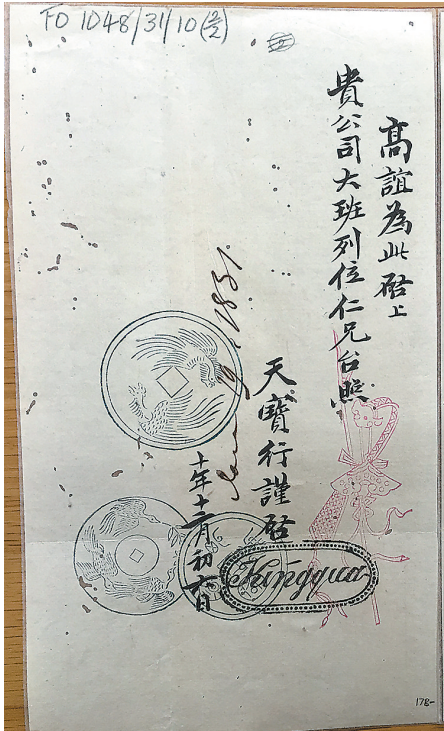 FO 1048/31/10 (2/2)
高誼為此啓上
貴公司大班列位仁兄台照
天寶行謹啓
十年十二月初六日
1831
Kingqua
178-